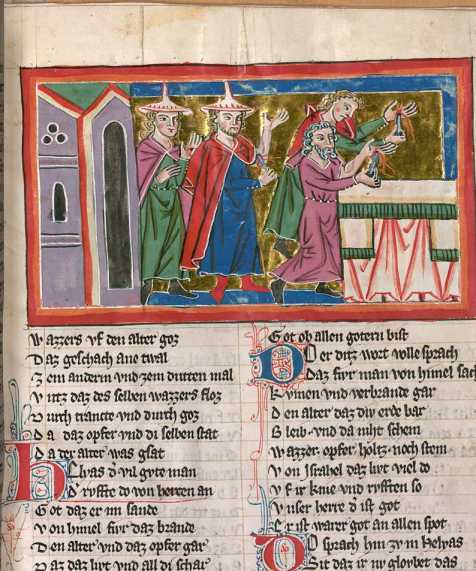 Wazzers vf den alter goz
Daz geschach ane twal
Zem andern vnd zem dritten mal
Vntz daz des selben wazzers floz
Durch trancte vnd durch goz
Da daz opfer vnd di selben stat
Da der alter was gsat
Helyas d vil gvte man
D rvfte do von herzen an
Got daz er im sande
Von himel fivr daz brande
Den alter vnd daz opfer gar
Daz daz livt vnd all di schar
Got ob allen gotern bist
Do er ditz wort volle sprach
Daz fivr man von himel sach
Kvmen vnd verbrande gar
Den alter daz div erde bar
Bleib vnd da niht schein
Wazzer opfer holtz noch stein
Von Israhel daz livt viel do
Vf ir knie vnd rvften so
Vnser herre d ist got
Er ist warer got an allen spot
Do sprach hin zv in Helyas
Sit daz ir nv glovbet das